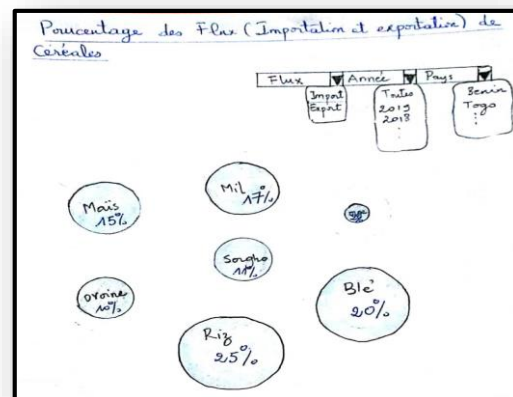 Pourcentage des Flux (Importation et exportation) de
Céréales
Flux Année Pays
Import
Export
Toutes
2019
2018
⋮
Benin
Togo
⋮
Maïs
15%
Mil
17%
Sorgho
11%
Avoine
10%
Blé
20%
Riz
25%